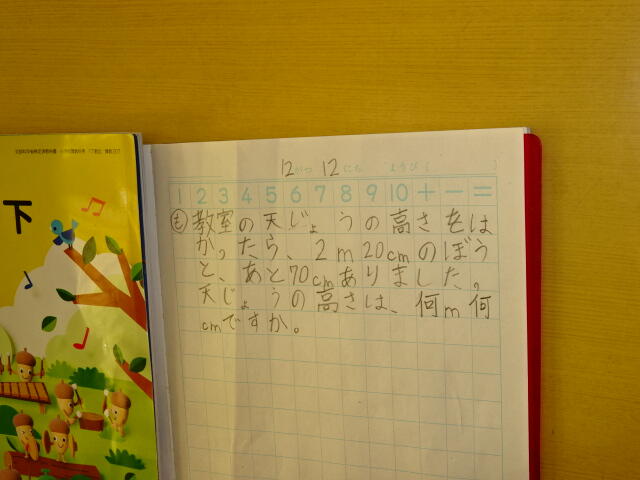 下
12がつ 12にち ようび
1 2 3 4 5 6 7 8 9 10 + − =
も 教室の天じょうの高さをは
かったら、2m20cmのぼう
と、あと70cmありました。
天じょうの高さは、何m何
cmですか。